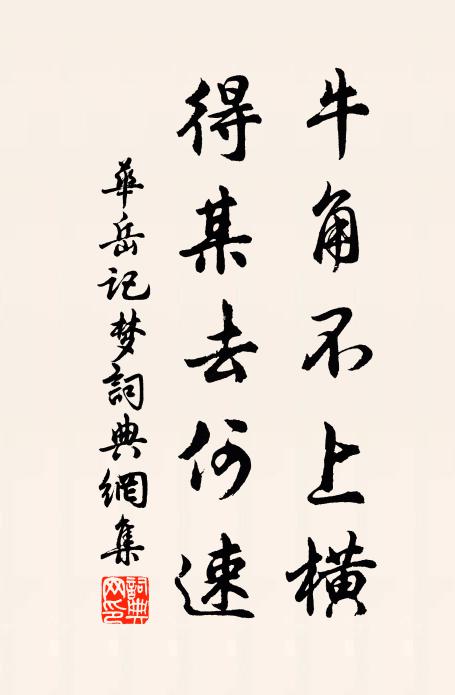 牛角不上横
得某去何速
華岳记梦詞典網集
詞典網印